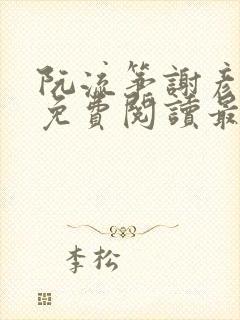 阮流笋謝彥
免費閱讀最
李松